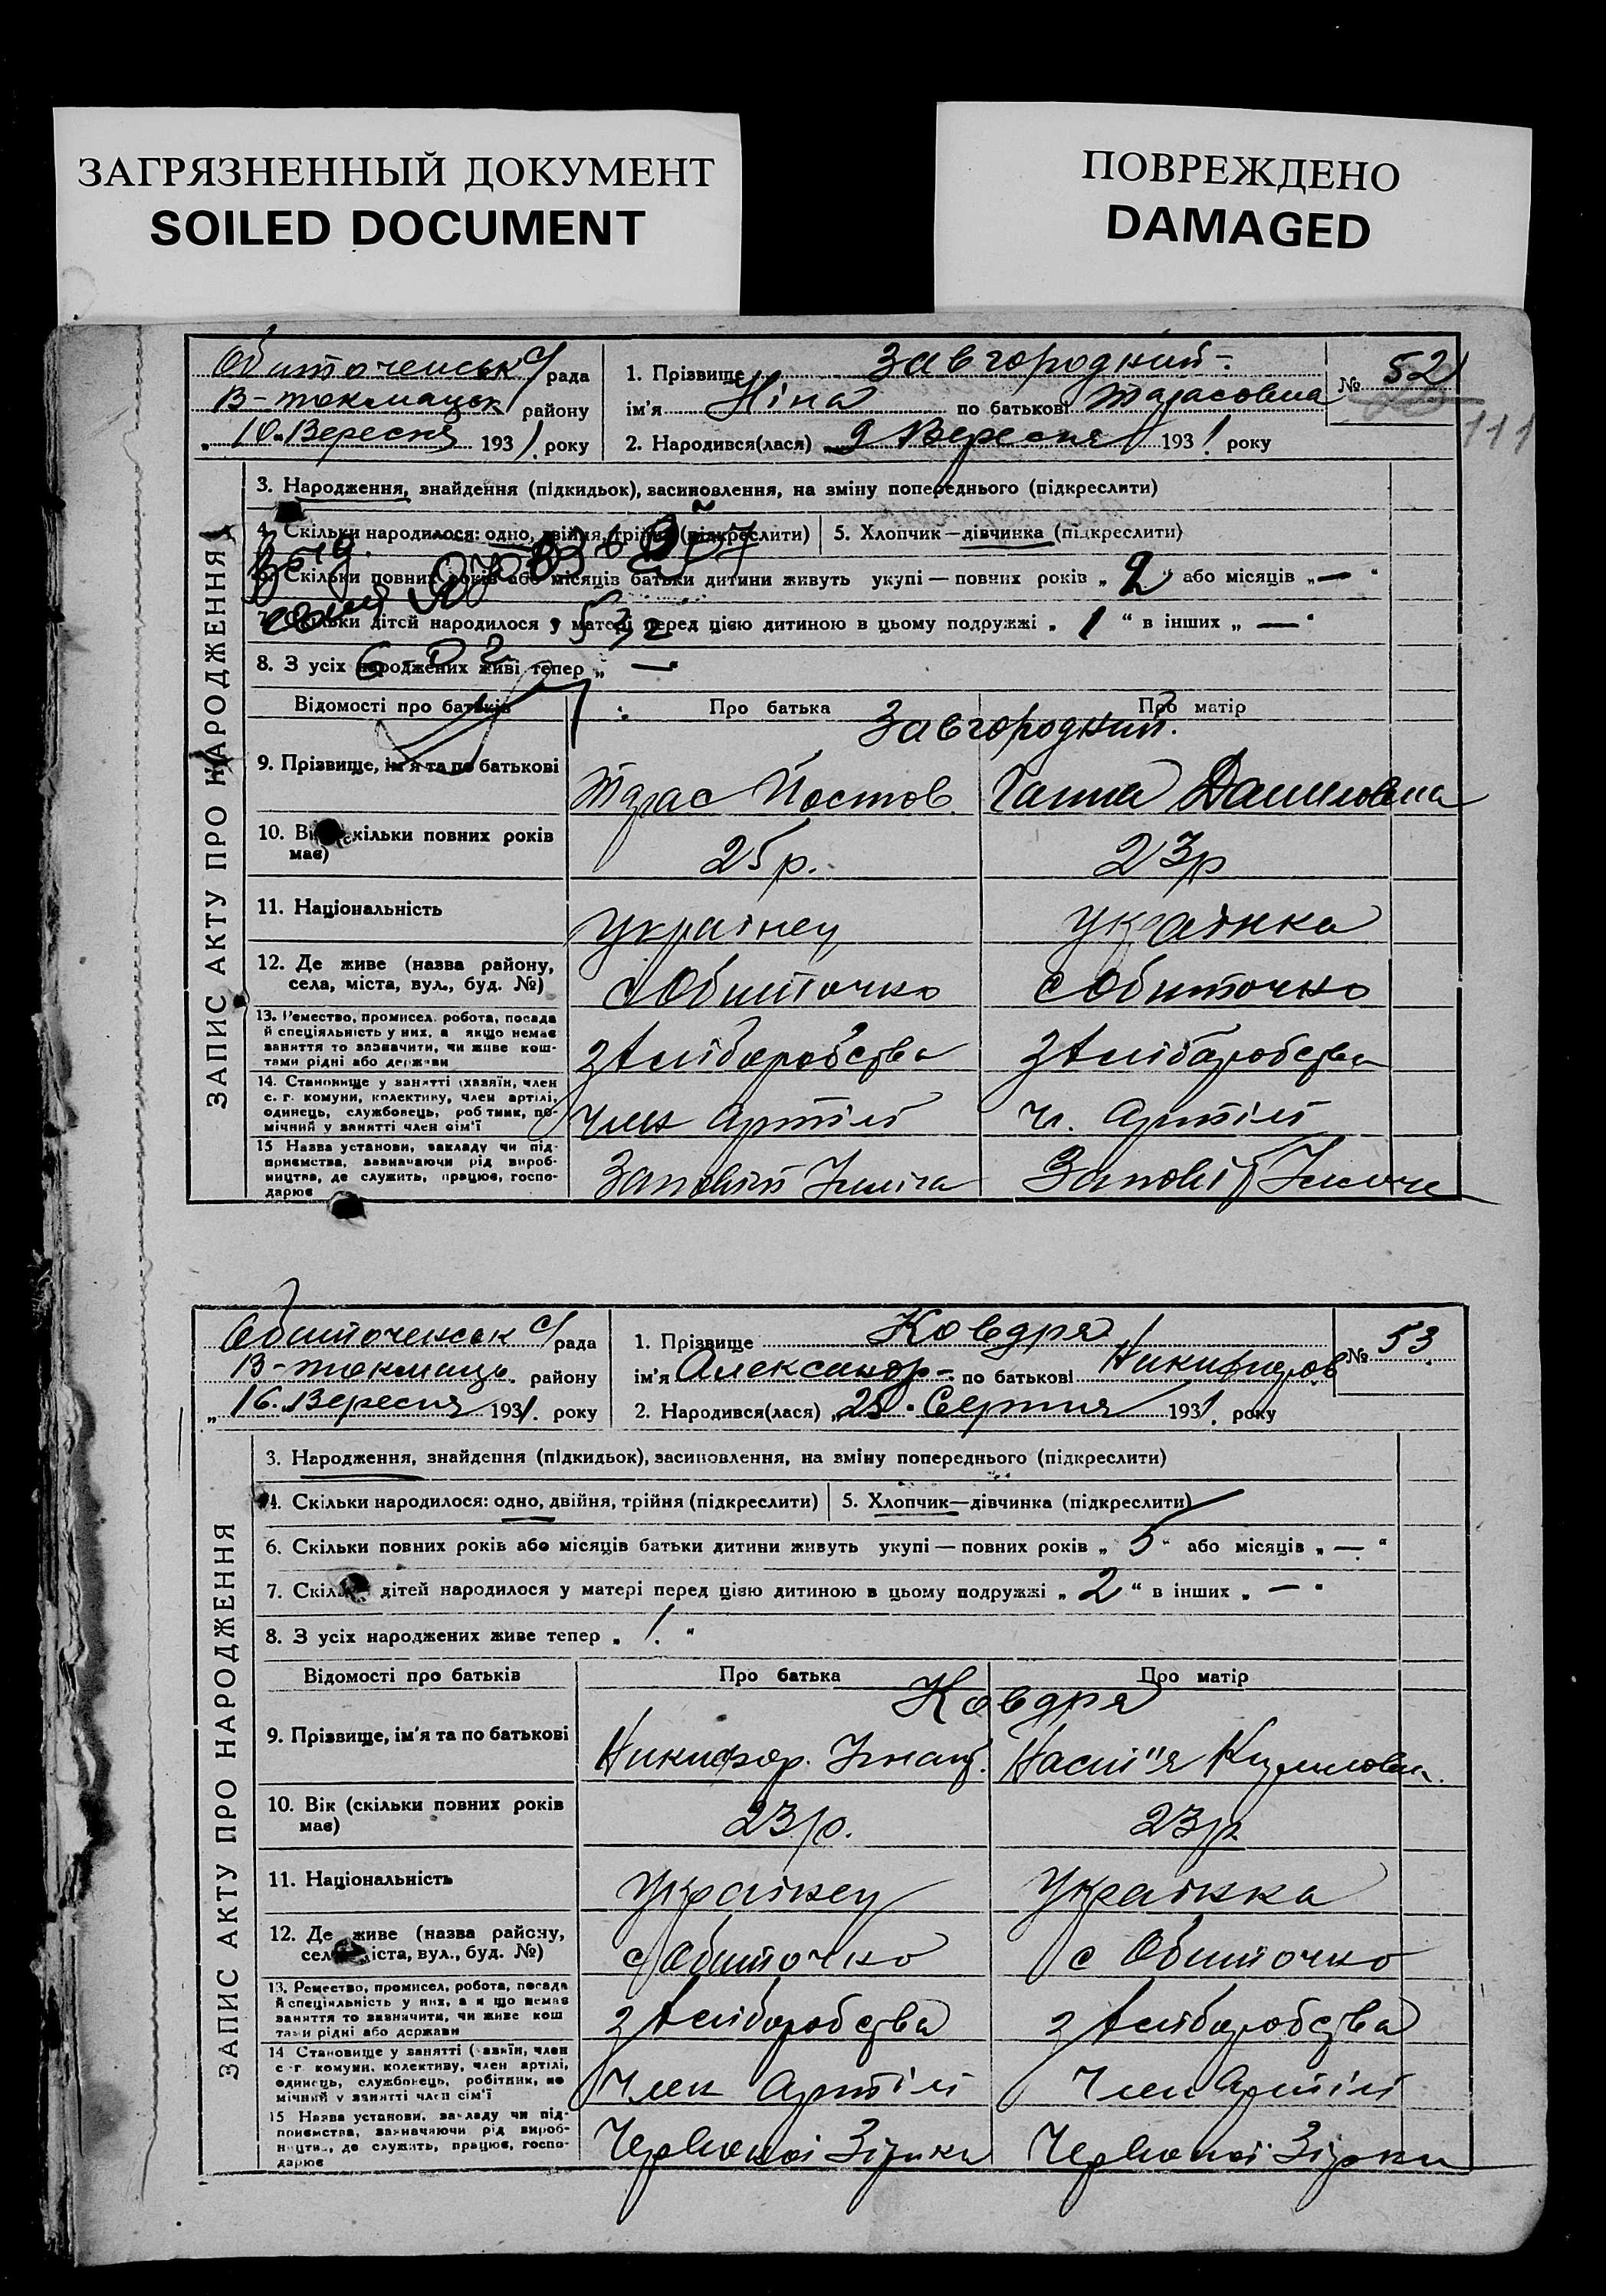 ЗАГРЯЗНЕННЫЙ ДОКУМЕНТ
SOILED DOCUMENT
ПОВРЕЖДЕНО
DAMAGED
Обиточенськ с/рада
В-токмацьк району
„10" Вересня 1931. року
1. Прізвище Завгородний
ім'я Ніна по батькові Тарасовна
2. Народився(лася) „9 Вересня 1931. року
№ 52
111
ЗАПИС АКТУ ПРО НАРОДЖЕННЯ
3. Народження, знайдення (підкидьок), засиновлення, на зміну попереднього (підкреслити)
4. Скільки народилося: одно, двійня, трійня (підкреслити) 5. Хлопчик—дівчинка (підкреслити)
6. Скільки повних років або місяців батьки дитини живуть укупі — повних років „ 2 " або місяців „—"
7. Скільки дітей народилося у матері перед цією дитиною в цьому подружжі „ 1 " в інших „ — "
8. З усіх народжених живі тепер „ — "
Відомості про батьків Про батька Про матір
Завгородний.
9. Прізвище, ім'я та по батькові Тарас Постов. Ганна Даниловна
10. Вік (скільки повних років має) 25 р. 23 р
11. Національність українец українка
12. Де живе (назва району, села, міста, вул., буд. №) с Обиточно с Обиточно
13. Ремество, промисел, робота, посада
й спеціяльність у них, а якщо немає
заняття то зазначити, чи живе кош-
тами рідні або держави
з хліборобства з хліборобства
14. Становище у занятті (хазяїн, член
с.-г. комуни, колективу, член артілі,
одинець, службовець, робітник, по-
мічний у занятті член сім'ї
Член Артілі ч. Артілі
15 Назва установи, закладу чи під-
приємства, зазначаючи рід вироб-
ництва, де служить, працює, госпо-
дарює
Заповіт Ілліча Заповіт Ілліча
Обиточенськ с/рада
В-токмацьк. району
„16. Вересня 1931. року
1. Прізвище Ковдря
ім'я Александр по батькові Никифоров
2. Народився(лася) „25. Серпня 1931. року
№ 53
ЗАПИС АКТУ ПРО НАРОДЖЕННЯ
3. Народження, знайдення (підкидьок), засиновлення, на зміну попереднього (підкреслити)
4. Скільки народилося: одно, двійня, трійня (підкреслити) 5. Хлопчик—дівчинка (підкреслити)
6. Скільки повних років або місяців батьки дитини живуть укупі — повних років „ 5 " або місяців „ — "
7. Скільки дітей народилося у матері перед цією дитиною в цьому подружжі „ 2 " в інших „ — "
8. З усіх народжених живе тепер „ 1. "
Відомості про батьків Про батька Про матір
Ковдря
9. Прізвище, ім'я та по батькові Никифор. Игнат. Наст"я
10. Вік (скільки повних років має) 23 р. 23 р
11. Національність українец українка
12. Де живе (назва району, села, міста, вул., буд. №) с Обиточно с Обиточно
13. Ремество, промисел, робота, посада
й спеціяльність у них, а якщо немає
заняття то зазначити, чи живе кош
тами рідні або держави
з хліборобства з хліборобства
14 Становище у занятті (хазяїн, член
с-г комуни, колективу, член артілі,
одинець, службовець, робітник, по
мічний у занятті член сім'ї
Член Артілі Член Артілі
15 Назва установи, закладу чи під-
приємства, зазначаючи рід вироб-
ництва, де служить, працює, госпо-
дарює
Червоної Зірки Червоної Зірки